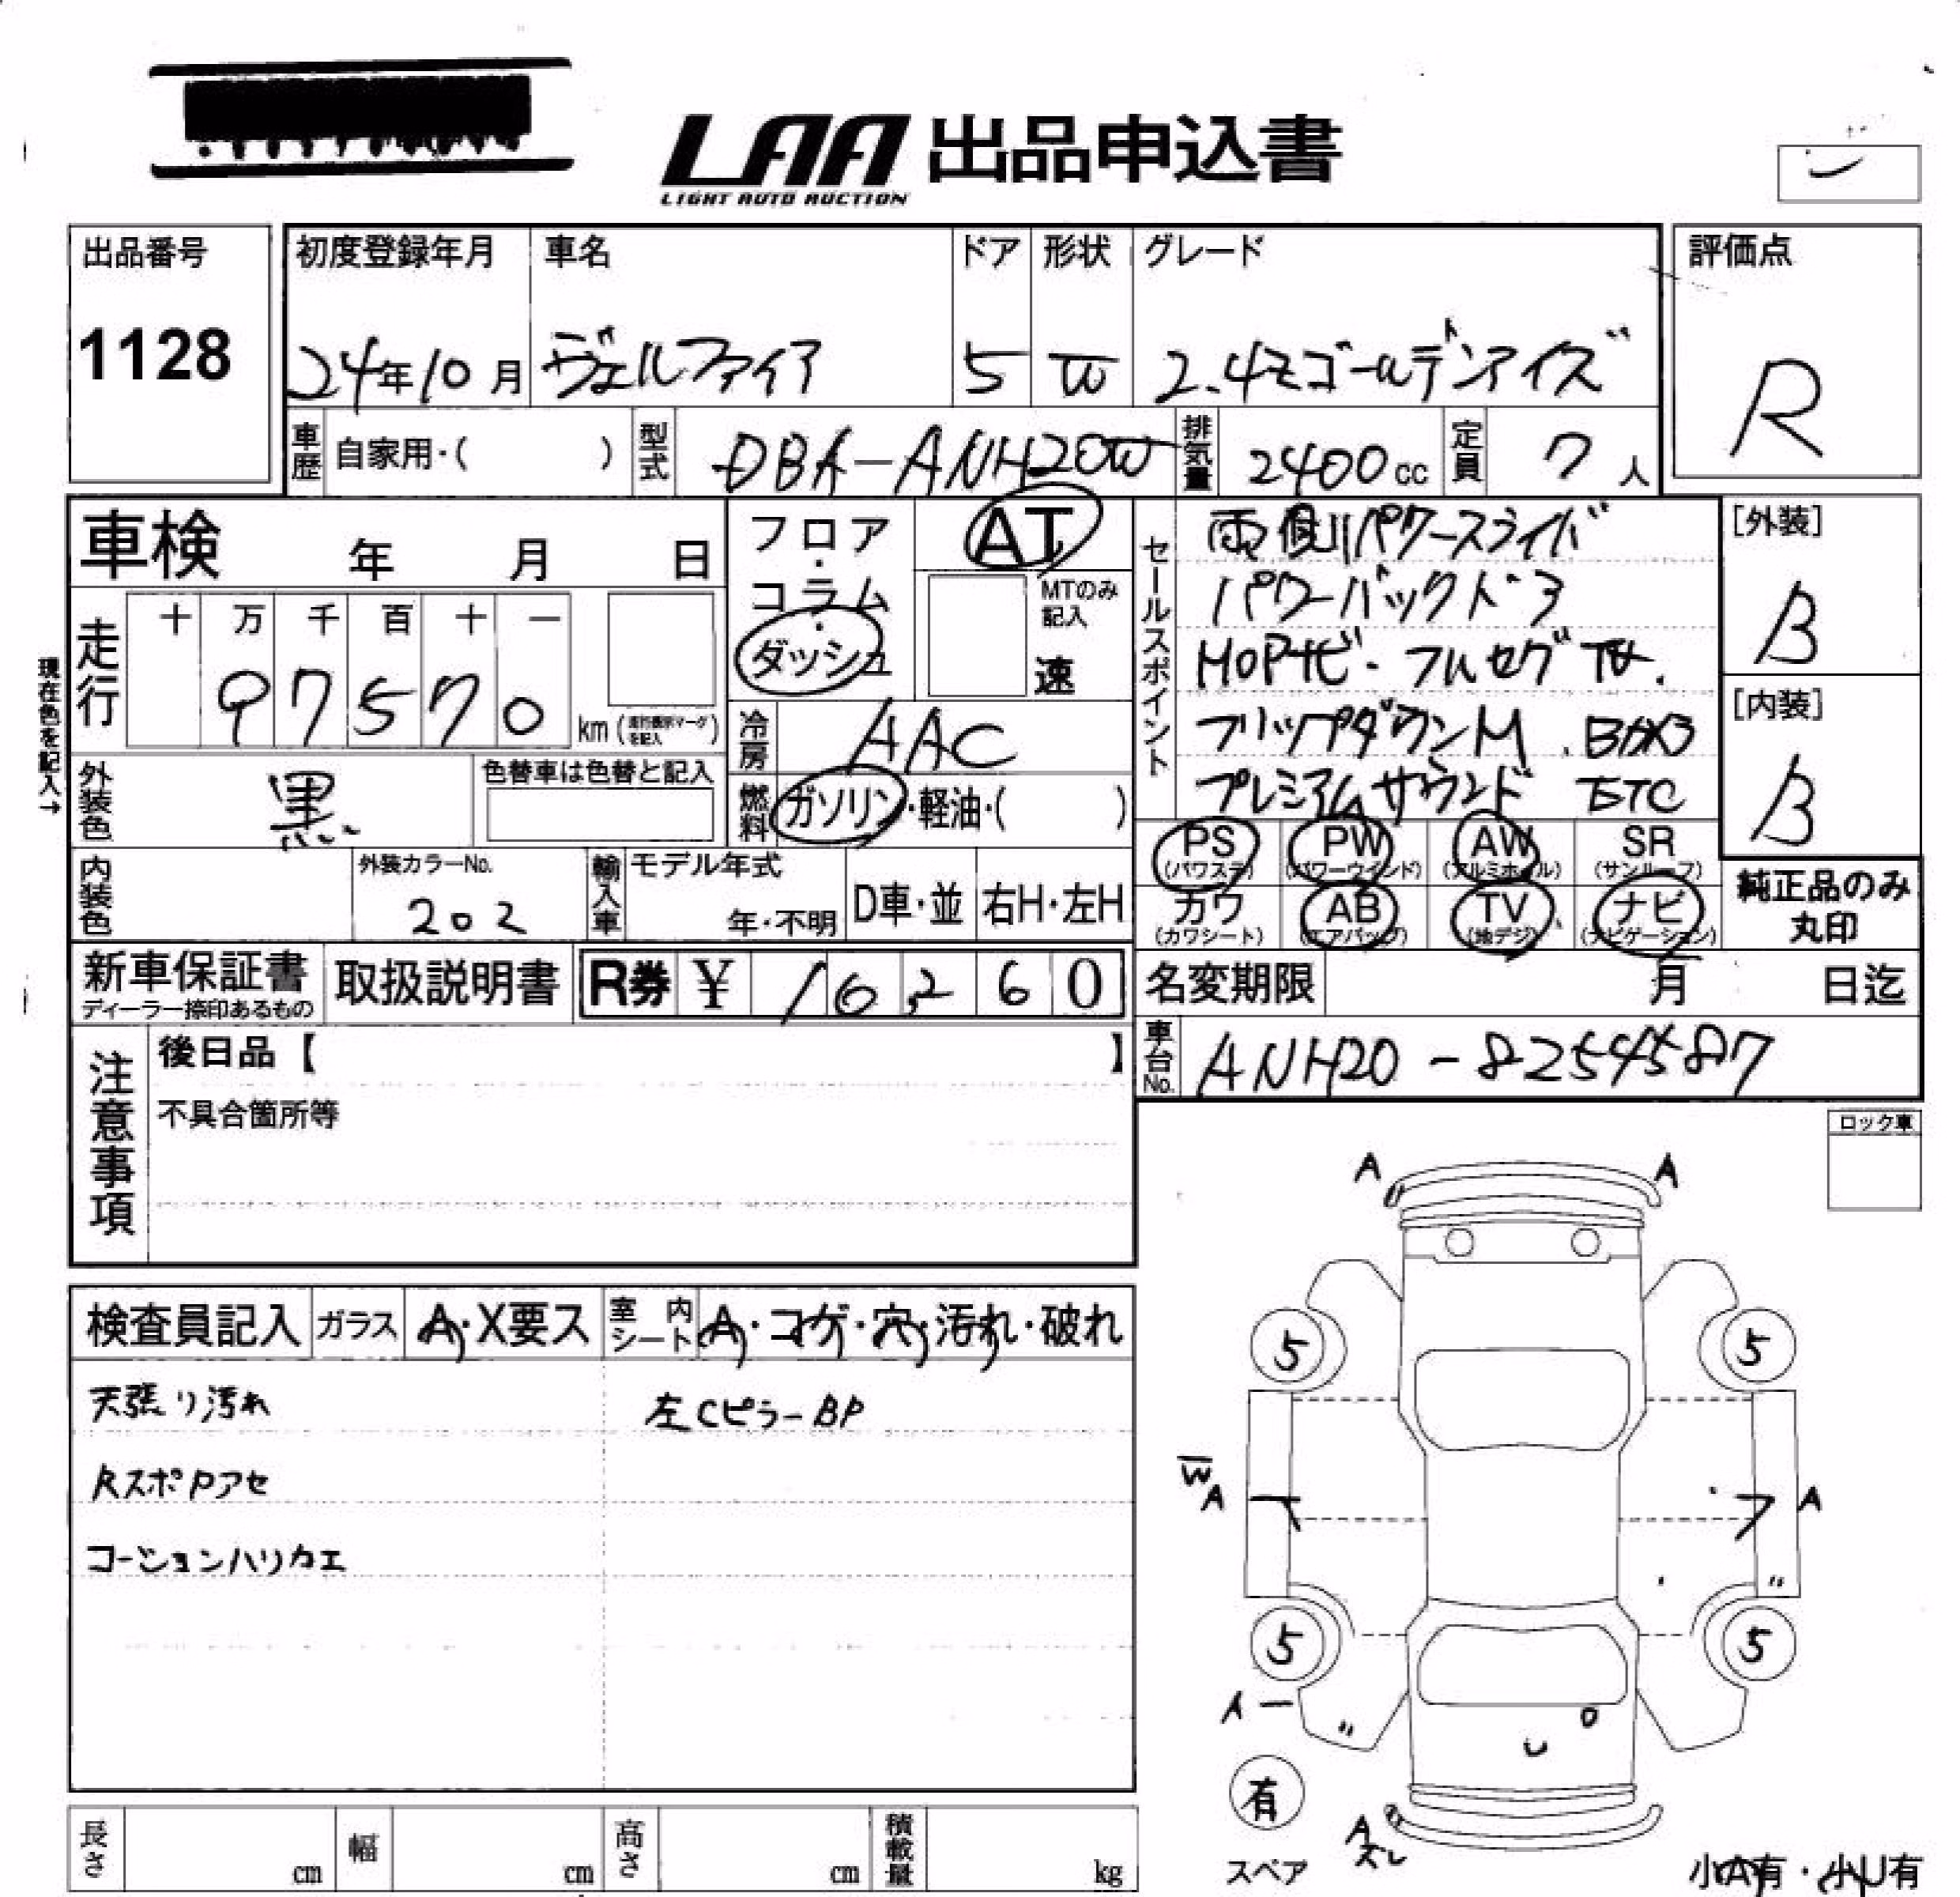 LAA 出品申込書
LIGHT AUTO AUCTION
出品番号
1128
初度登録年月
24年10月
車名
ヴェルファイア
ドア
5
形状
W
グレード
2.4Zゴールデンアイズ
評価点
R
車歴 自家用・( )
型式 DBA-ANH20W
排気量 2400cc
定員 7人
車検 年 月 日
現在色を記入→
走行 十 万 千 百 十 一
97570 km
フロア・コラム・ダッシュ
AT
MTのみ記入
速
冷房 AAC
燃料 ガソリン・軽油・( )
外装色 黒
色替車は色替と記入
内装色
外装カラーNo.
202
輸入車 モデル年式
年・不明
D車・並
右H・左H
セールスポイント
両側パワースライド
パワーバックドア
HOPナビ・フルセグTV.
フリップダウンM.
プレミアムサウンド ETC
[外装]
B
[内装]
B
PS (パワステ)
PW (パワーウインド)
AW (アルミホイル)
SR (サンルーフ)
カワ (カワシート)
AB (エアバッグ)
TV (地デジ)
ナビ (ナビゲーション)
純正品のみ
丸印
新車保証書
ディーラー捺印あるもの
取扱説明書
R券 ¥ 16,260
名変期限 月 日迄
車台No. ANH20-8254587
注意事項
後日品【 】
不具合箇所等
ロック車
検査員記入
ガラス A・X要ス
室内シート A・コゲ・穴・汚れ・破れ
天張り汚れ
左CピラーBP
RスポPアセ
コーションハリカエ
A A
5 5
W A A
5 5
A
有
スペア
A
ズレ
小A有・小U有
長さ cm
幅 cm
高さ cm
積載量 kg